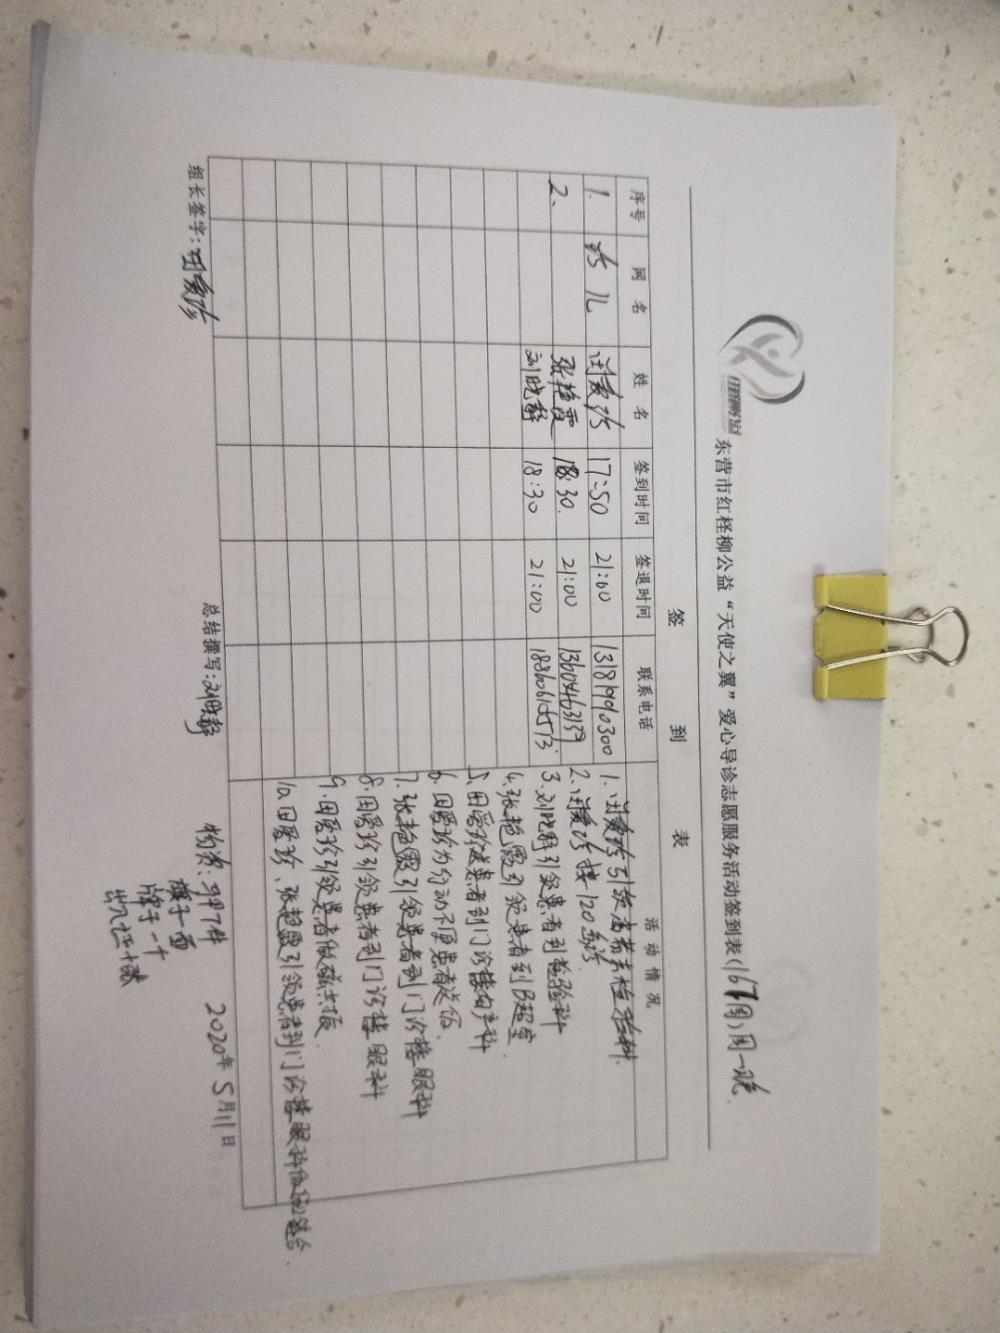 东营市红柽柳公益“天使之翼”爱心导诊志愿服务活动签到表(167周)周一晚
签 到 表
序号 网 名 姓 名 签到时间 签退时间 联系电话 活 动 情 况
1. 珍儿 田爱珍 17:50 21:00 13181990300
2、 张艳霞 18:30. 21:00
刘晓静 18:30 21:00
1. 田爱珍引领患者去检验科.
2. 田爱珍接120急诊.
3. 刘晓静引领患者到检验科
4. 张艳霞引领患者到B超室.
5. 田爱珍送患者到门诊楼妇产科
6. 田爱珍为行动不便患者送饭.
7. 张艳霞引领患者到门诊楼眼科
8. 田爱珍引领患者到门诊楼眼科
9. 田爱珍引领患者做磁共振.
10. 田爱珍、张艳霞引领患者到门诊楼眼科做
组长签字:田爱珍 总结撰写:刘晓静 物资: 7件 2020年5月11日
旗子一面
牌子一个